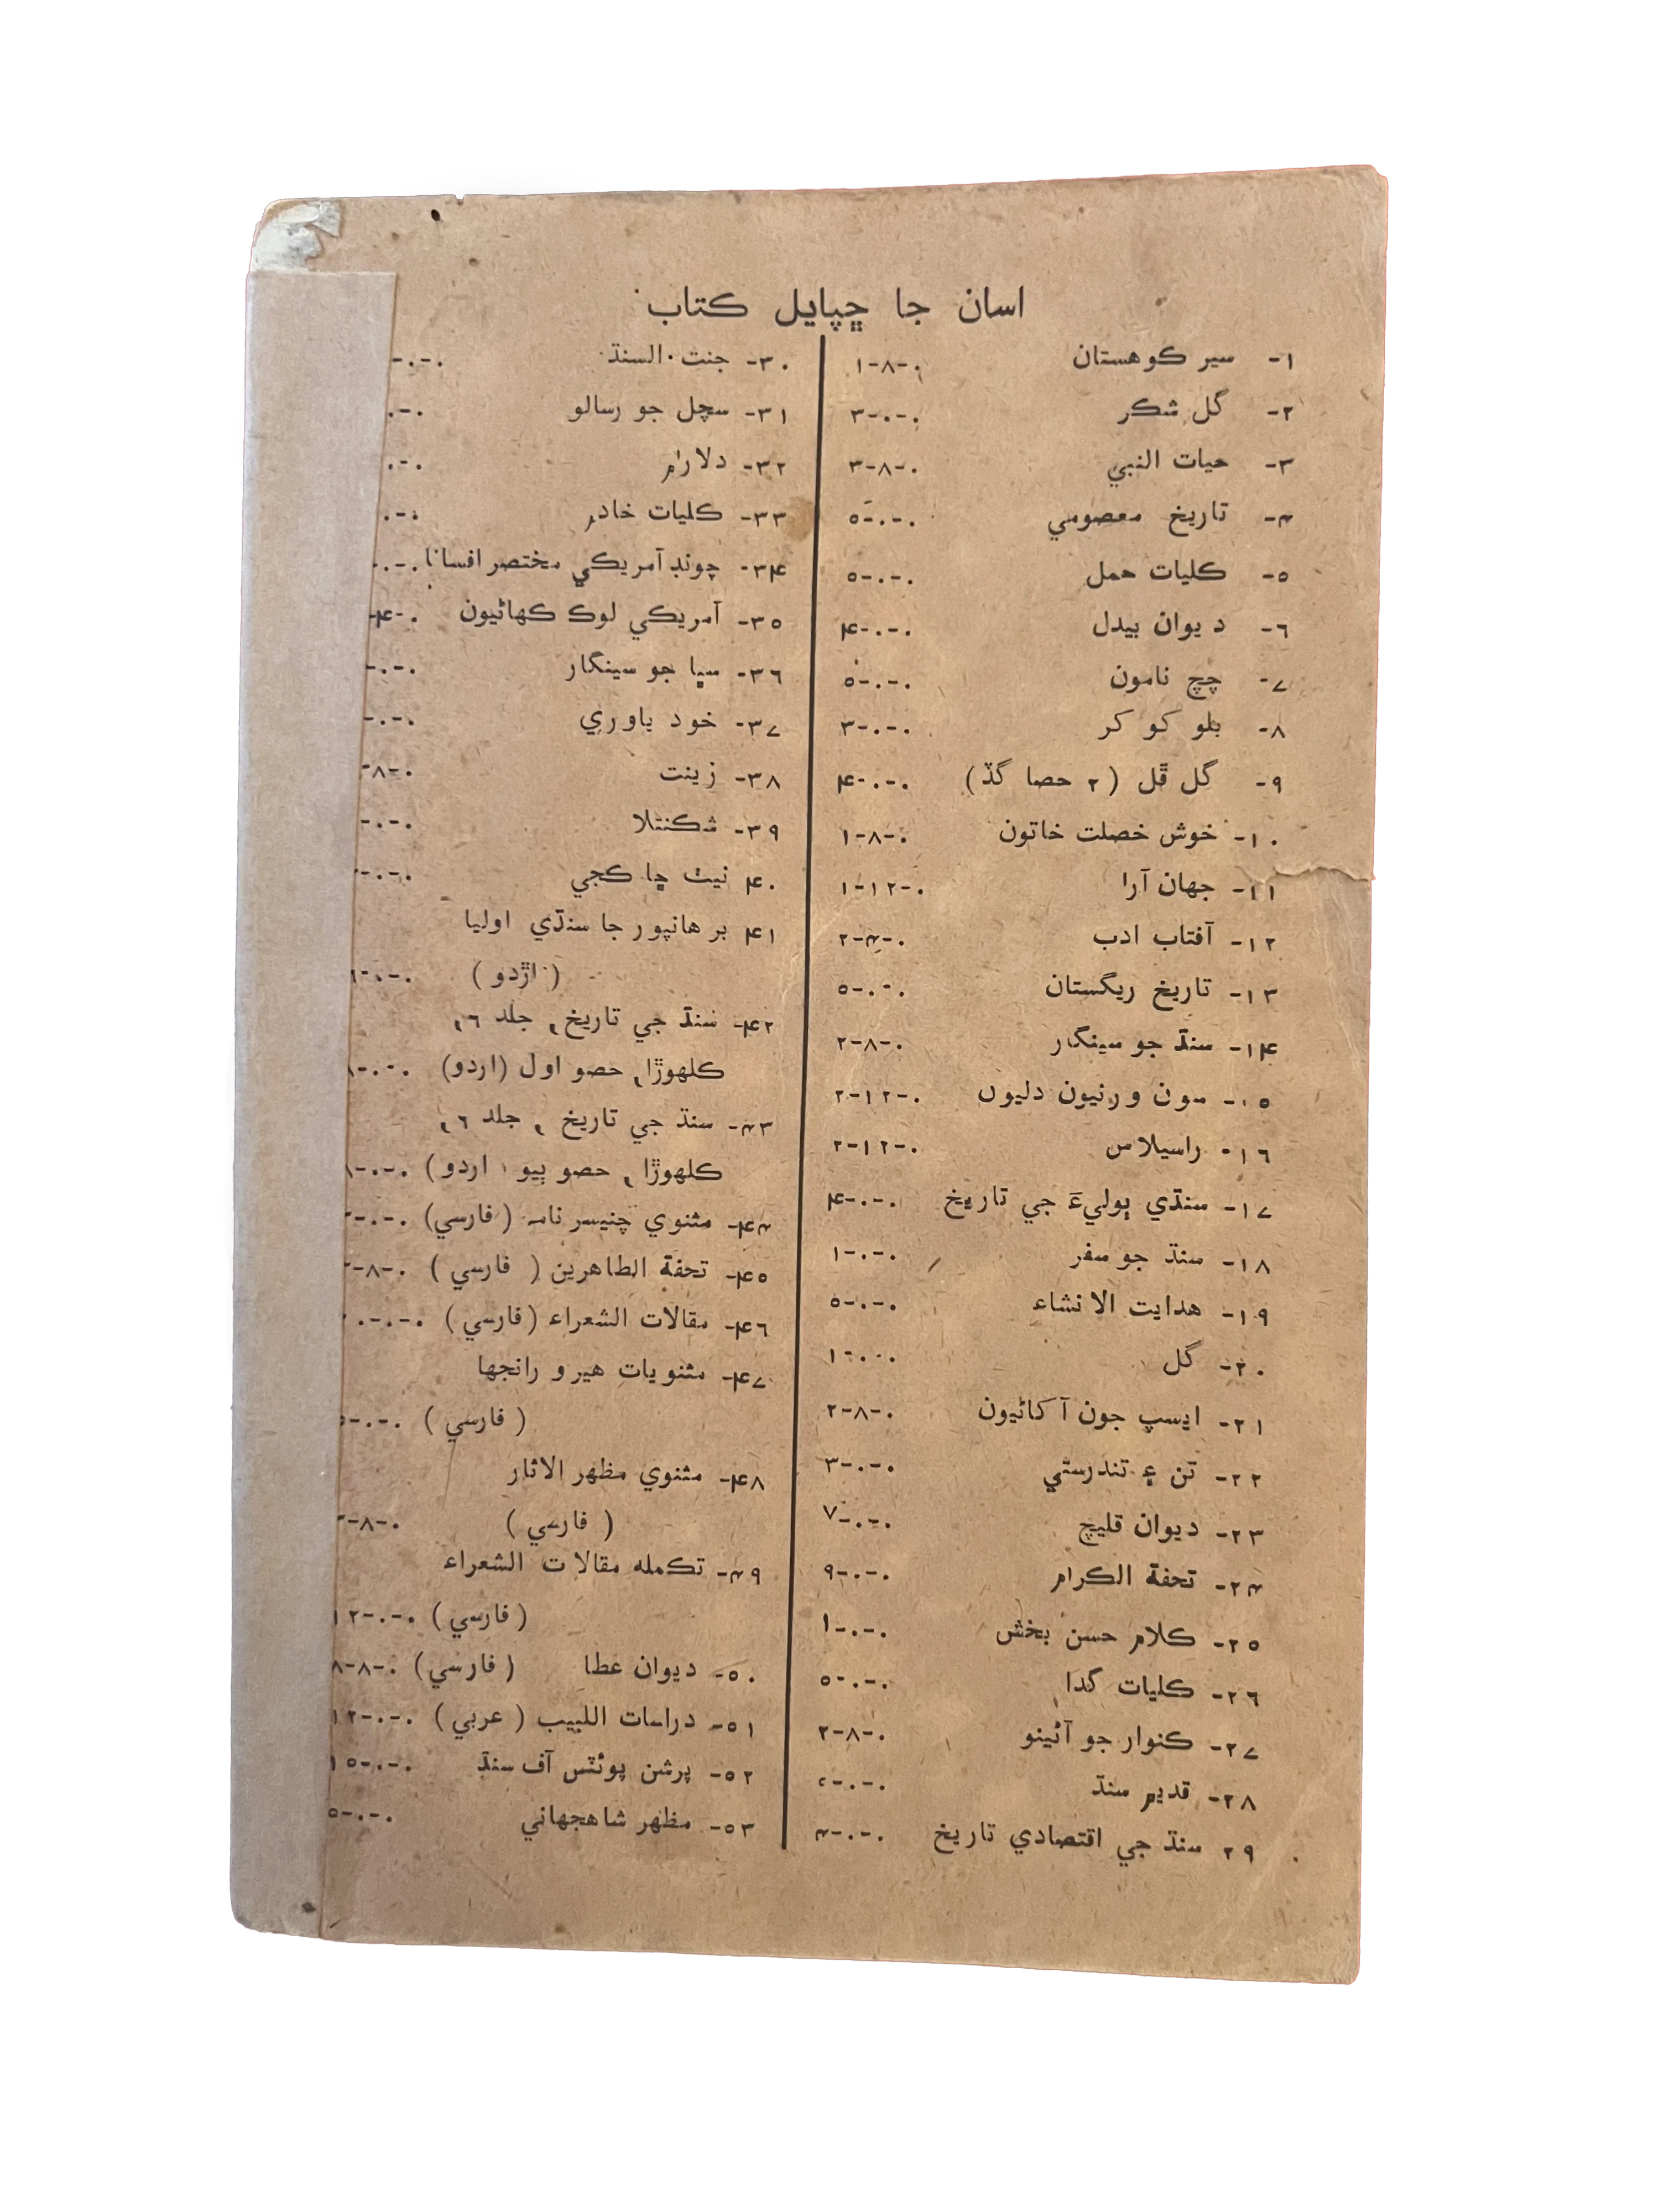 اسان جا ڇپايل ڪتاب
١- سير ڪوهستان ٠-٨-١
٢- گل شڪر ٠-٠-٣
٣- حيات النبي ٠-٨-٣
۴- تاريخ معصومي ٠-٠-٥
٥- ڪليات حمل ٠-٠-٥
٦- ديوان بيدل ٠-٠-۴
٧- چچ نامون ٠-٠-٥
٨- بلو کو کر ٠-٠-٣
٩- گل ڦل (٢ حصا گڏ) ٠-٠-۴
١٠- خوش خصلت خاتون ٠-٨-١
١١- جهان آرا ٠-١٢-١
١٢- آفتاب ادب ٠-۴-٢
١٣- تاريخ ريگستان ٠-٠-٥
١۴- سنڌ جو سينگار ٠-٨-٢
١٥- مون ورنيون دليون ٠-١٢-٢
١٦- راسيلاس ٠-١٢-٢
١٧- سنڌي ٻوليءَ جي تاريخ ٠-٠-۴
١٨- سنڌ جو سفر ٠-٠-١
١٩- هدايت الانشاء ٠-٠-٥
٢٠- گل ٠-٠-١
٢١- ايسپ جون آکاڻيون ٠-٨-٢
٢٢- تن ۽ تندرستي ٠-٠-٣
٢٣- ديوان قليچ ٠-٠-٧
٢۴- تحفة الڪرام ٠-٠-٩
٢٥- ڪلام حسن بخش ٠-٠-١
٢٦- ڪليات گدا ٠-٠-٥
٢٧- ڪنوار جو آئينو ٠-٨-٢
٢٨- قديم سنڌ ٠-٠-
٢٩ سنڌ جي اقتصادي تاريخ ٠-٠-۴
٣٠- جنت السنڌ ٠-٠-
٣١- سچل جو رسالو ٠-٠
٣٢- دلارام ٠-٠
٣٣- ڪليات خادم ٠-٠
٣۴- چونڊ آمريڪي مختصر افسانا ٠-٠-
٣٥- آمريڪي لوڪ ڪهاڻيون ٠-۴-
٣٦- سڀا جو سينگار ٠-٠-
٣٧- خود ياوري ٠-٠-
٣٨- زينت ٠-٨-
٣٩- شڪنتلا ٠-٠-
۴٠ نيٺ ڇا ڪجي ٠-٠-
۴١ برهانپور جا سنڌي اوليا
(اڙدو) ٠-٠-٦
۴٢- سنڌ جي تاريخ، جلد ٦،
ڪلهوڙا، حصو اول (اردو) ٠-٠-٨
۴٣- سنڌ جي تاريخ، جلد ٦،
ڪلهوڙا، حصو ٻيو، اردو) ٠-٠-٨
۴۴- مثنوي چنيسر نامہ (فارسي) ٠-٠-
۴٥- تحفة الطاهرين (فارسي) ٠-٨-
۴٦- مقالات الشعراء (فارسي) ٠-٠-
۴٧- مثنويات هير و رانجها
(فارسي) ٠-٠-٥
۴٨- مثنوي مظهر الاثار
(فارسي) ٠-٨-
۴٩- تڪمله مقالات الشعراء
(فارسي) ٠-٠-١٢
٥٠- ديوان عطا (فارسي) ٠-٨-٨
٥١- دراسات اللبيب (عربي) ٠-٠-١٢
٥٢- پرشن پوئٽس آف سنڌ ٠-٠-١٥
٥٣- مظهر شاهجهاني ٠-٠-٥